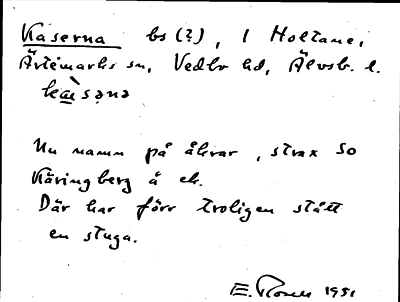 Kaserna bs (?), 1 Holtane,
Ärtemarks sn, Vedbo hd, Älvsb. l.
kæ̀səṇa
Nu namn på åkrar, strax so
Käringberg å ek.
Där har förr troligen stått
en stuga.
E. Rosell 1951